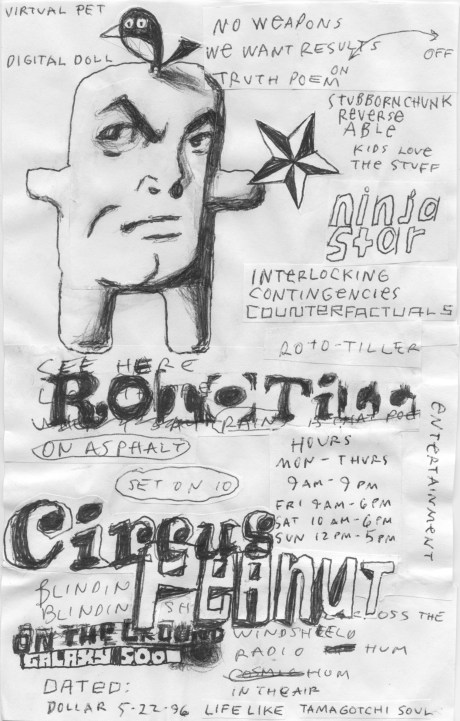 VIRTUAL PET
DIGITAL DOLL
NO WEAPONS
WE WANT RESULTS
TRUTH POEM
ON
OFF
STUBBORN CHUNK
REVERSE
ABLE
KIDS LOVE
THE STUFF
ninja
star
INTERLOCKING
CONTINGENCIES
COUNTERFACTUALS
ROTO-TILLER
SEE HERE
IS THAT POE
ON ASPHALT
ENTERTAINMENT
HOURS
MON - THURS
9AM - 9PM
FRI 9AM - 6PM
SAT 10AM - 6PM
SUN 12PM - 5PM
SET ON 10
Circus
PEANUT
BLINDIN
BLINDIN SH
ON THE GROUND
GALAXY 500
OSS THE
WINDSHIELD
RADIO HUM
COSMIC HUM
IN THE AIR
DATED:
DOLLAR 5-22-96 LIFE LIKE TAMAGOTCHI SOUL